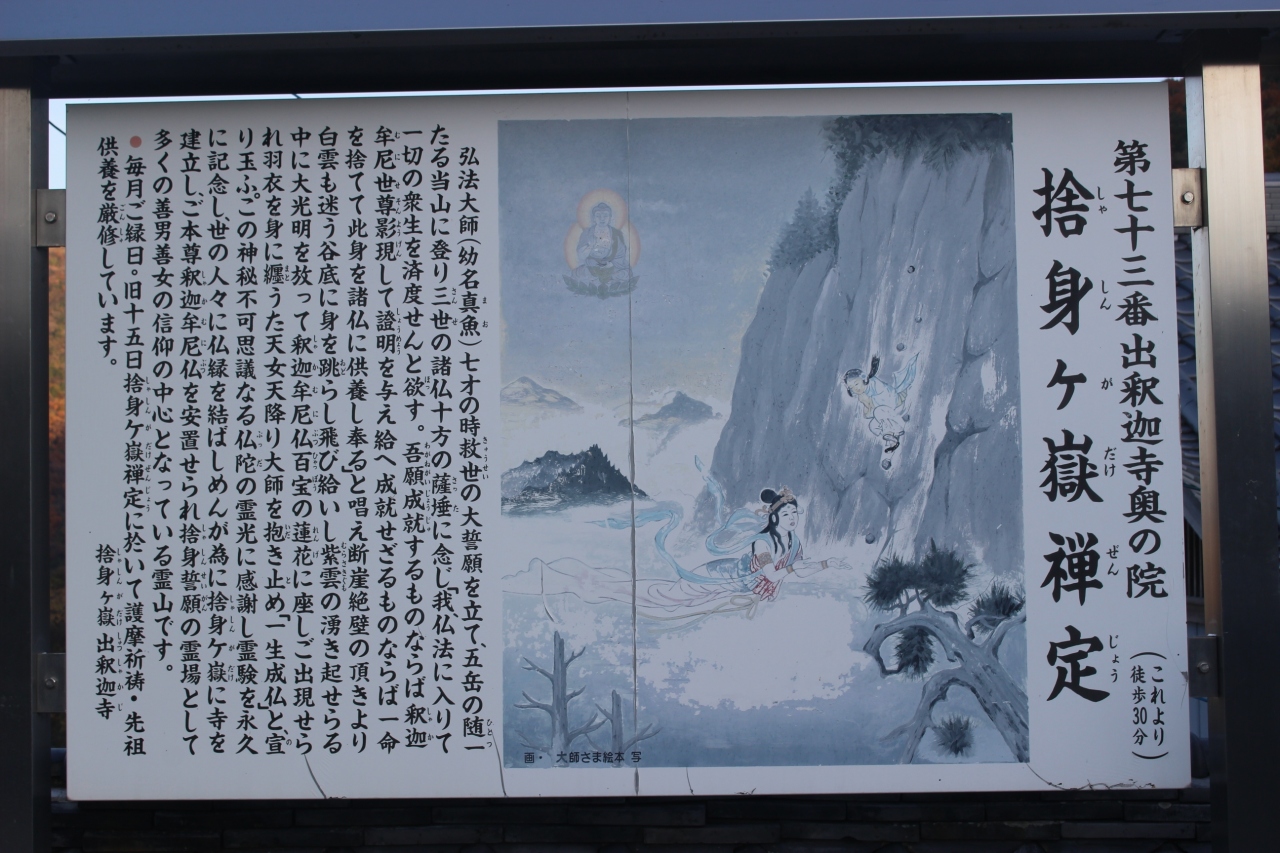 第七十三番出釈迦寺奥の院
(これより徒歩30分)
捨身ヶ嶽禅定
しゃしんがだけぜんじょう
弘法大師(幼名真魚)七才の時救世の大誓願を立て、五岳の随一
たる当山に登り三世の諸仏十方の薩埵に念じ「我、仏法に入りて
一切の衆生を済度せんと欲す。吾願成就するものならば釈迦
牟尼世尊影現して證明を与え給へ成就せざるものならば一命
を捨てて此身を諸仏に供養し奉る」と唱え断崖絶壁の頂きより
白雲も迷う谷底に身を跳らし飛び給いし紫雲の湧き起せらる
中に大光明を放って釈迦牟尼仏百宝の蓮花に座しご出現せら
れ羽衣を身に纒うた天女天降り大師を抱き止め「一生成仏」と、宣
り玉ふ。この神秘不可思議なる仏陀の霊光に感謝し霊験を永久
に記念し、世の人々に仏縁を結ばしめんが為に捨身ヶ嶽に寺を
建立し、ご本尊釈迦牟尼仏を安置せられ捨身誓願の霊場として
多くの善男善女の信仰の中心となっている霊山です。
●毎月ご縁日。旧十五日捨身ヶ嶽禅定に於いて護摩祈祷・先祖
供養を厳修しています。
捨身ヶ嶽 出釈迦寺
画・ 大師さま絵本 写